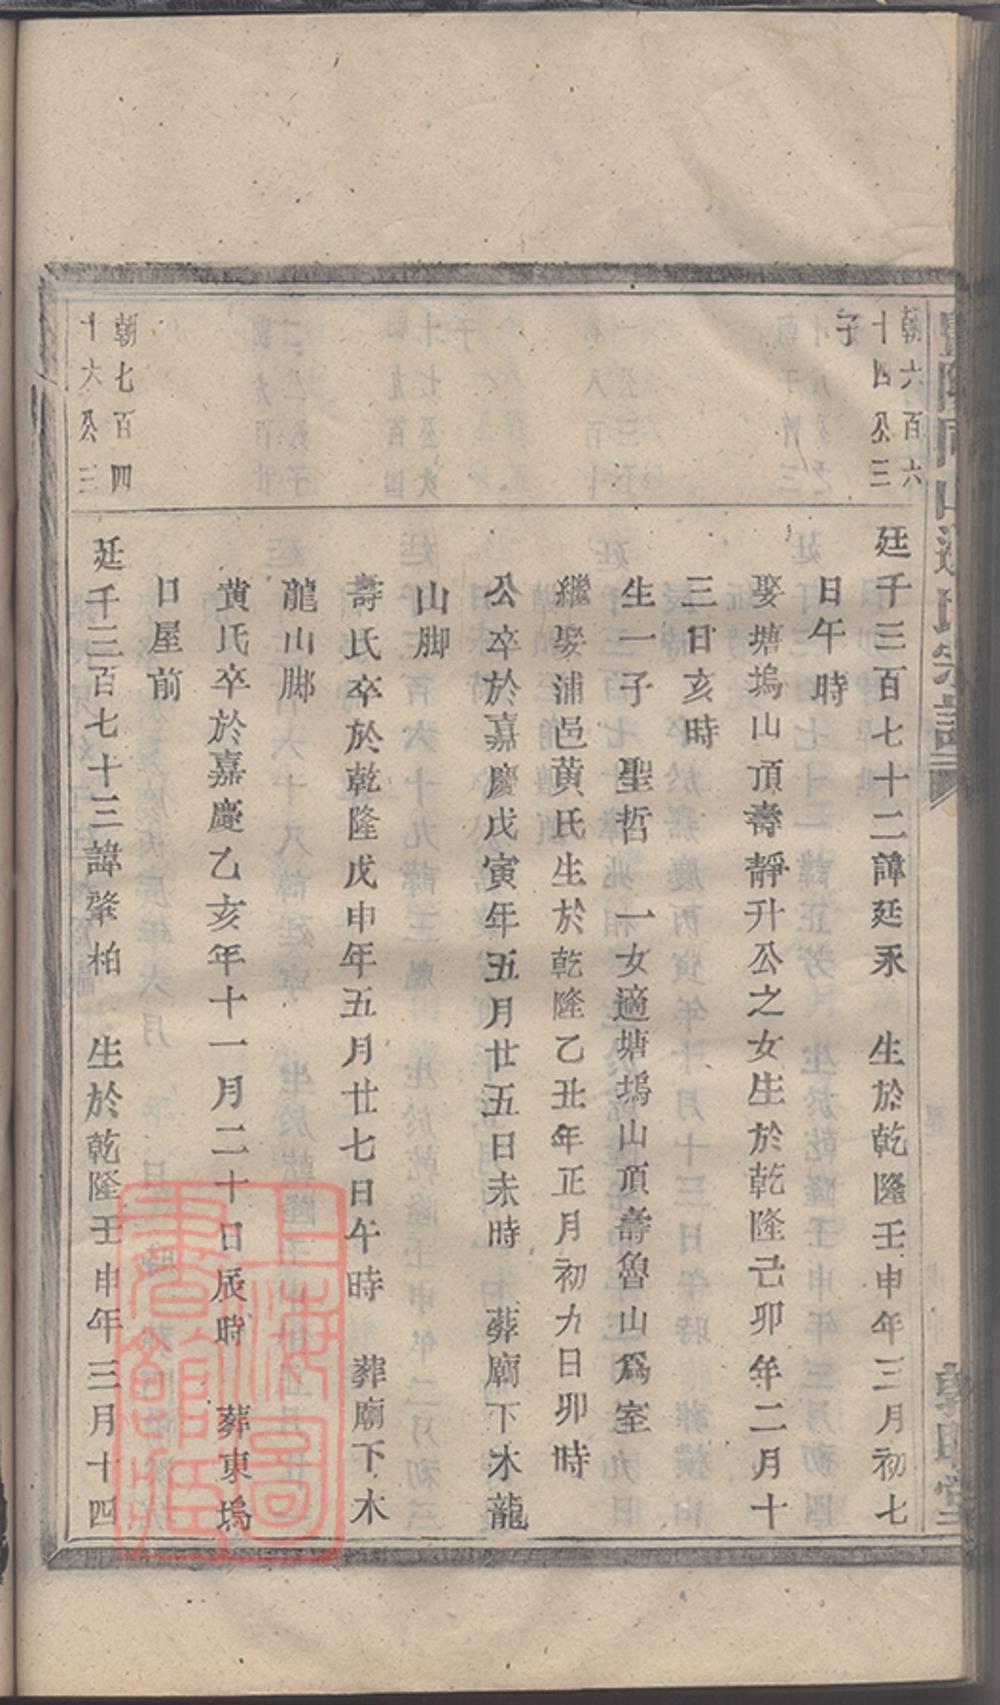 朝六百六
十四公三
子
廷千三百七十二諱廷永　生於乾隆壬申年三月初七
日午時
娶塘塢山頂壽靜升公之女生於乾隆己卯年二月十
三日亥時
生一子　聖哲　一女適塘塢山頂壽魯山爲室
繼娶浦邑黄氏生於乾隆乙丑年正月初九日卯時
公卒於嘉慶戊寅年五月廿五日未時　葬廟下水龍
山脚
壽氏卒於乾隆戊申年五月廿七日午時　葬廟下木
龍山脚
黄氏卒於嘉慶乙亥年十一月二十日辰時　葬東塢
口屋前
朝七百四
十六公三
廷千三百七十三諱肇柏　生於乾隆壬申年三月十四
上海圖
書館藏